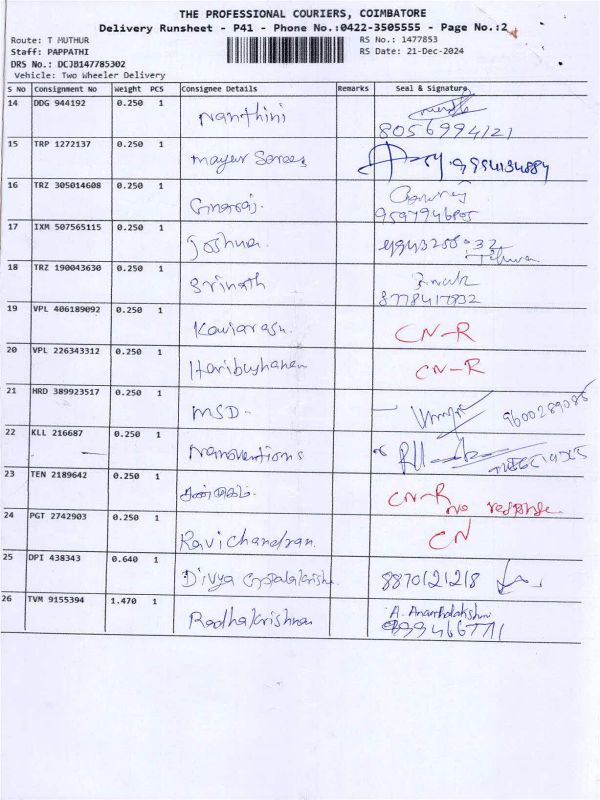 THE PROFESSIONAL COURIERS, COIMBATORE
Delivery Runsheet - P41 - Phone No.:0422-3505555 - Page No.:2
Route: T MUTHUR RS No.: 1477853
Staff: PAPPATHI RS Date: 21-Dec-2024
DRS No.: DCJB147785302
Vehicle: Two Wheeler Delivery
S No Consignment No Weight PCS Consignee Details Remarks Seal & Signature
14 DDG 944192 0.250 1 Nanthini
8056994121
15 TRP 1272137 0.250 1 mayur Sarees 9994134884
16 TRZ 305014608 0.250 1
9597946805
17 IXM 507565115 0.250 1 Joshua
18 TRZ 190043630 0.250 1 Srinath
8778417932
19 VPL 406189092 0.250 1 Kaviarasu. CN-R
20 VPL 226343312 0.250 1 Haribuyhanan CN-R
21 HRD 389923517 0.250 1 MSD- 9600289086
22 KLL 216687 0.250 1 Nanoventions
23 TEN 2189642 0.250 1 CN-R no response
24 PGT 2742903 0.250 1 Ravichandran. CN
25 DPI 438343 0.640 1 Divya Gopalakrishn. 8870121218
26 TVM 9155394 1.470 1 Radhakrishnan A. Ananthalakshmi